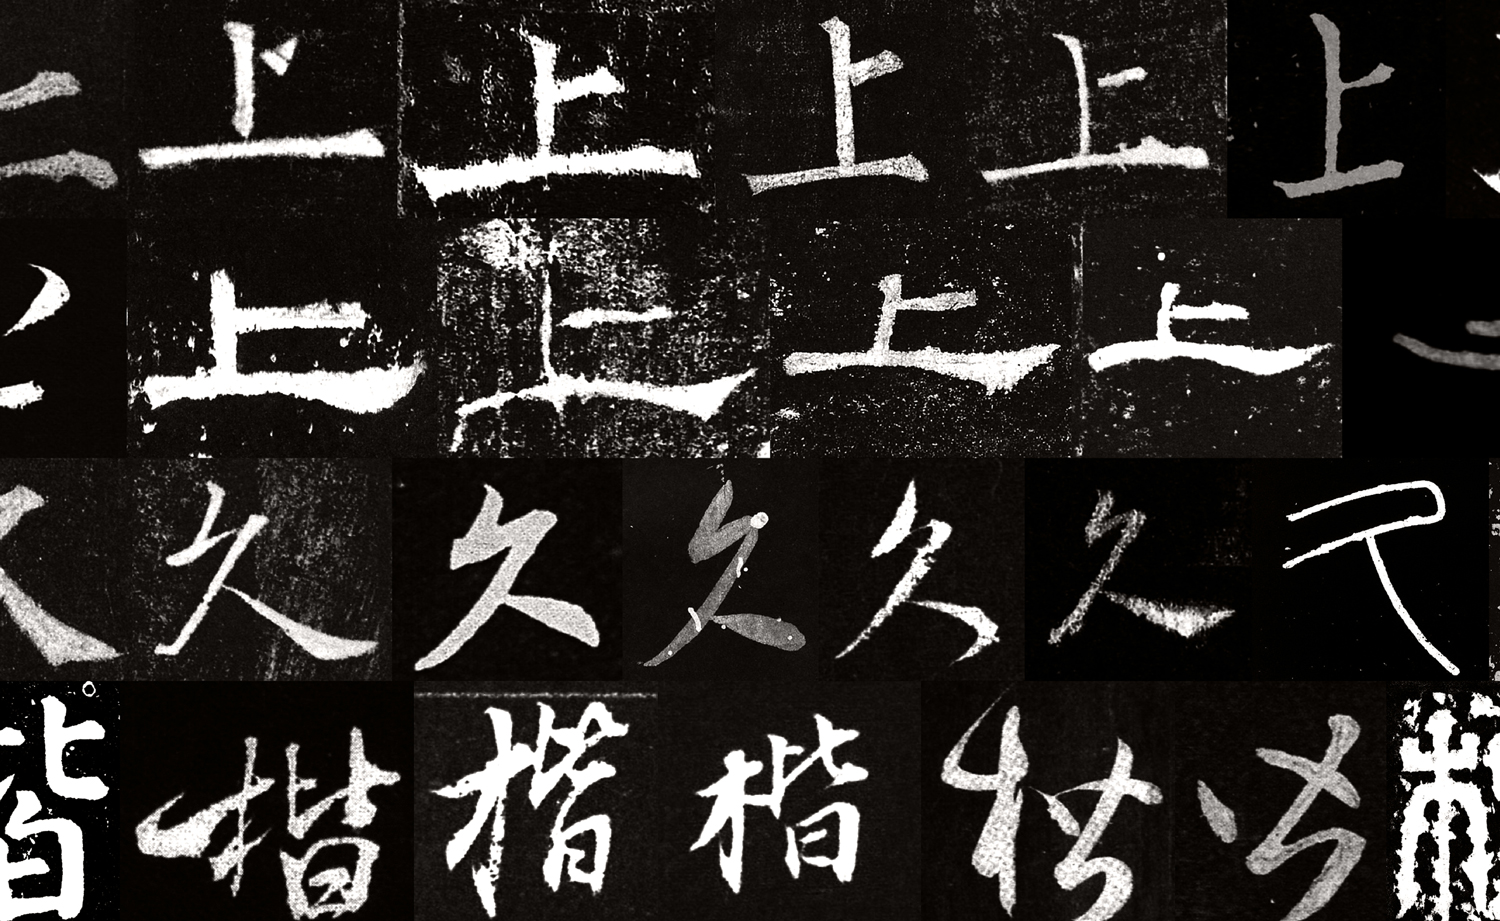 上上上上上
上上上上
久久久久久久
楷楷楷楷